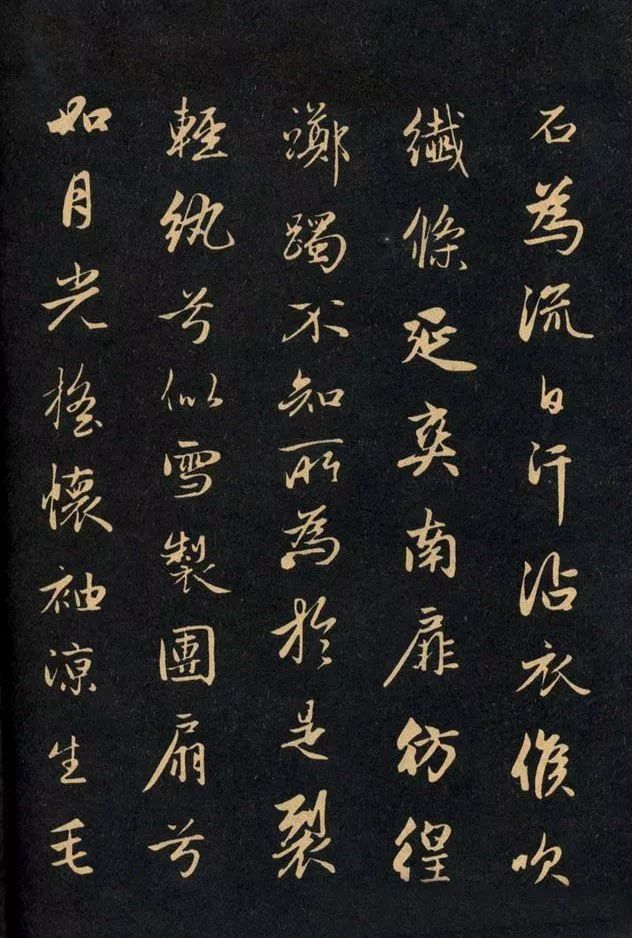 石為流白汗沾衣候吹
纖條延爽南扉彷徨
躑躅不知所為於是裂
輕紈兮似雪製團扇兮
如月光搖懷袖凉生毛